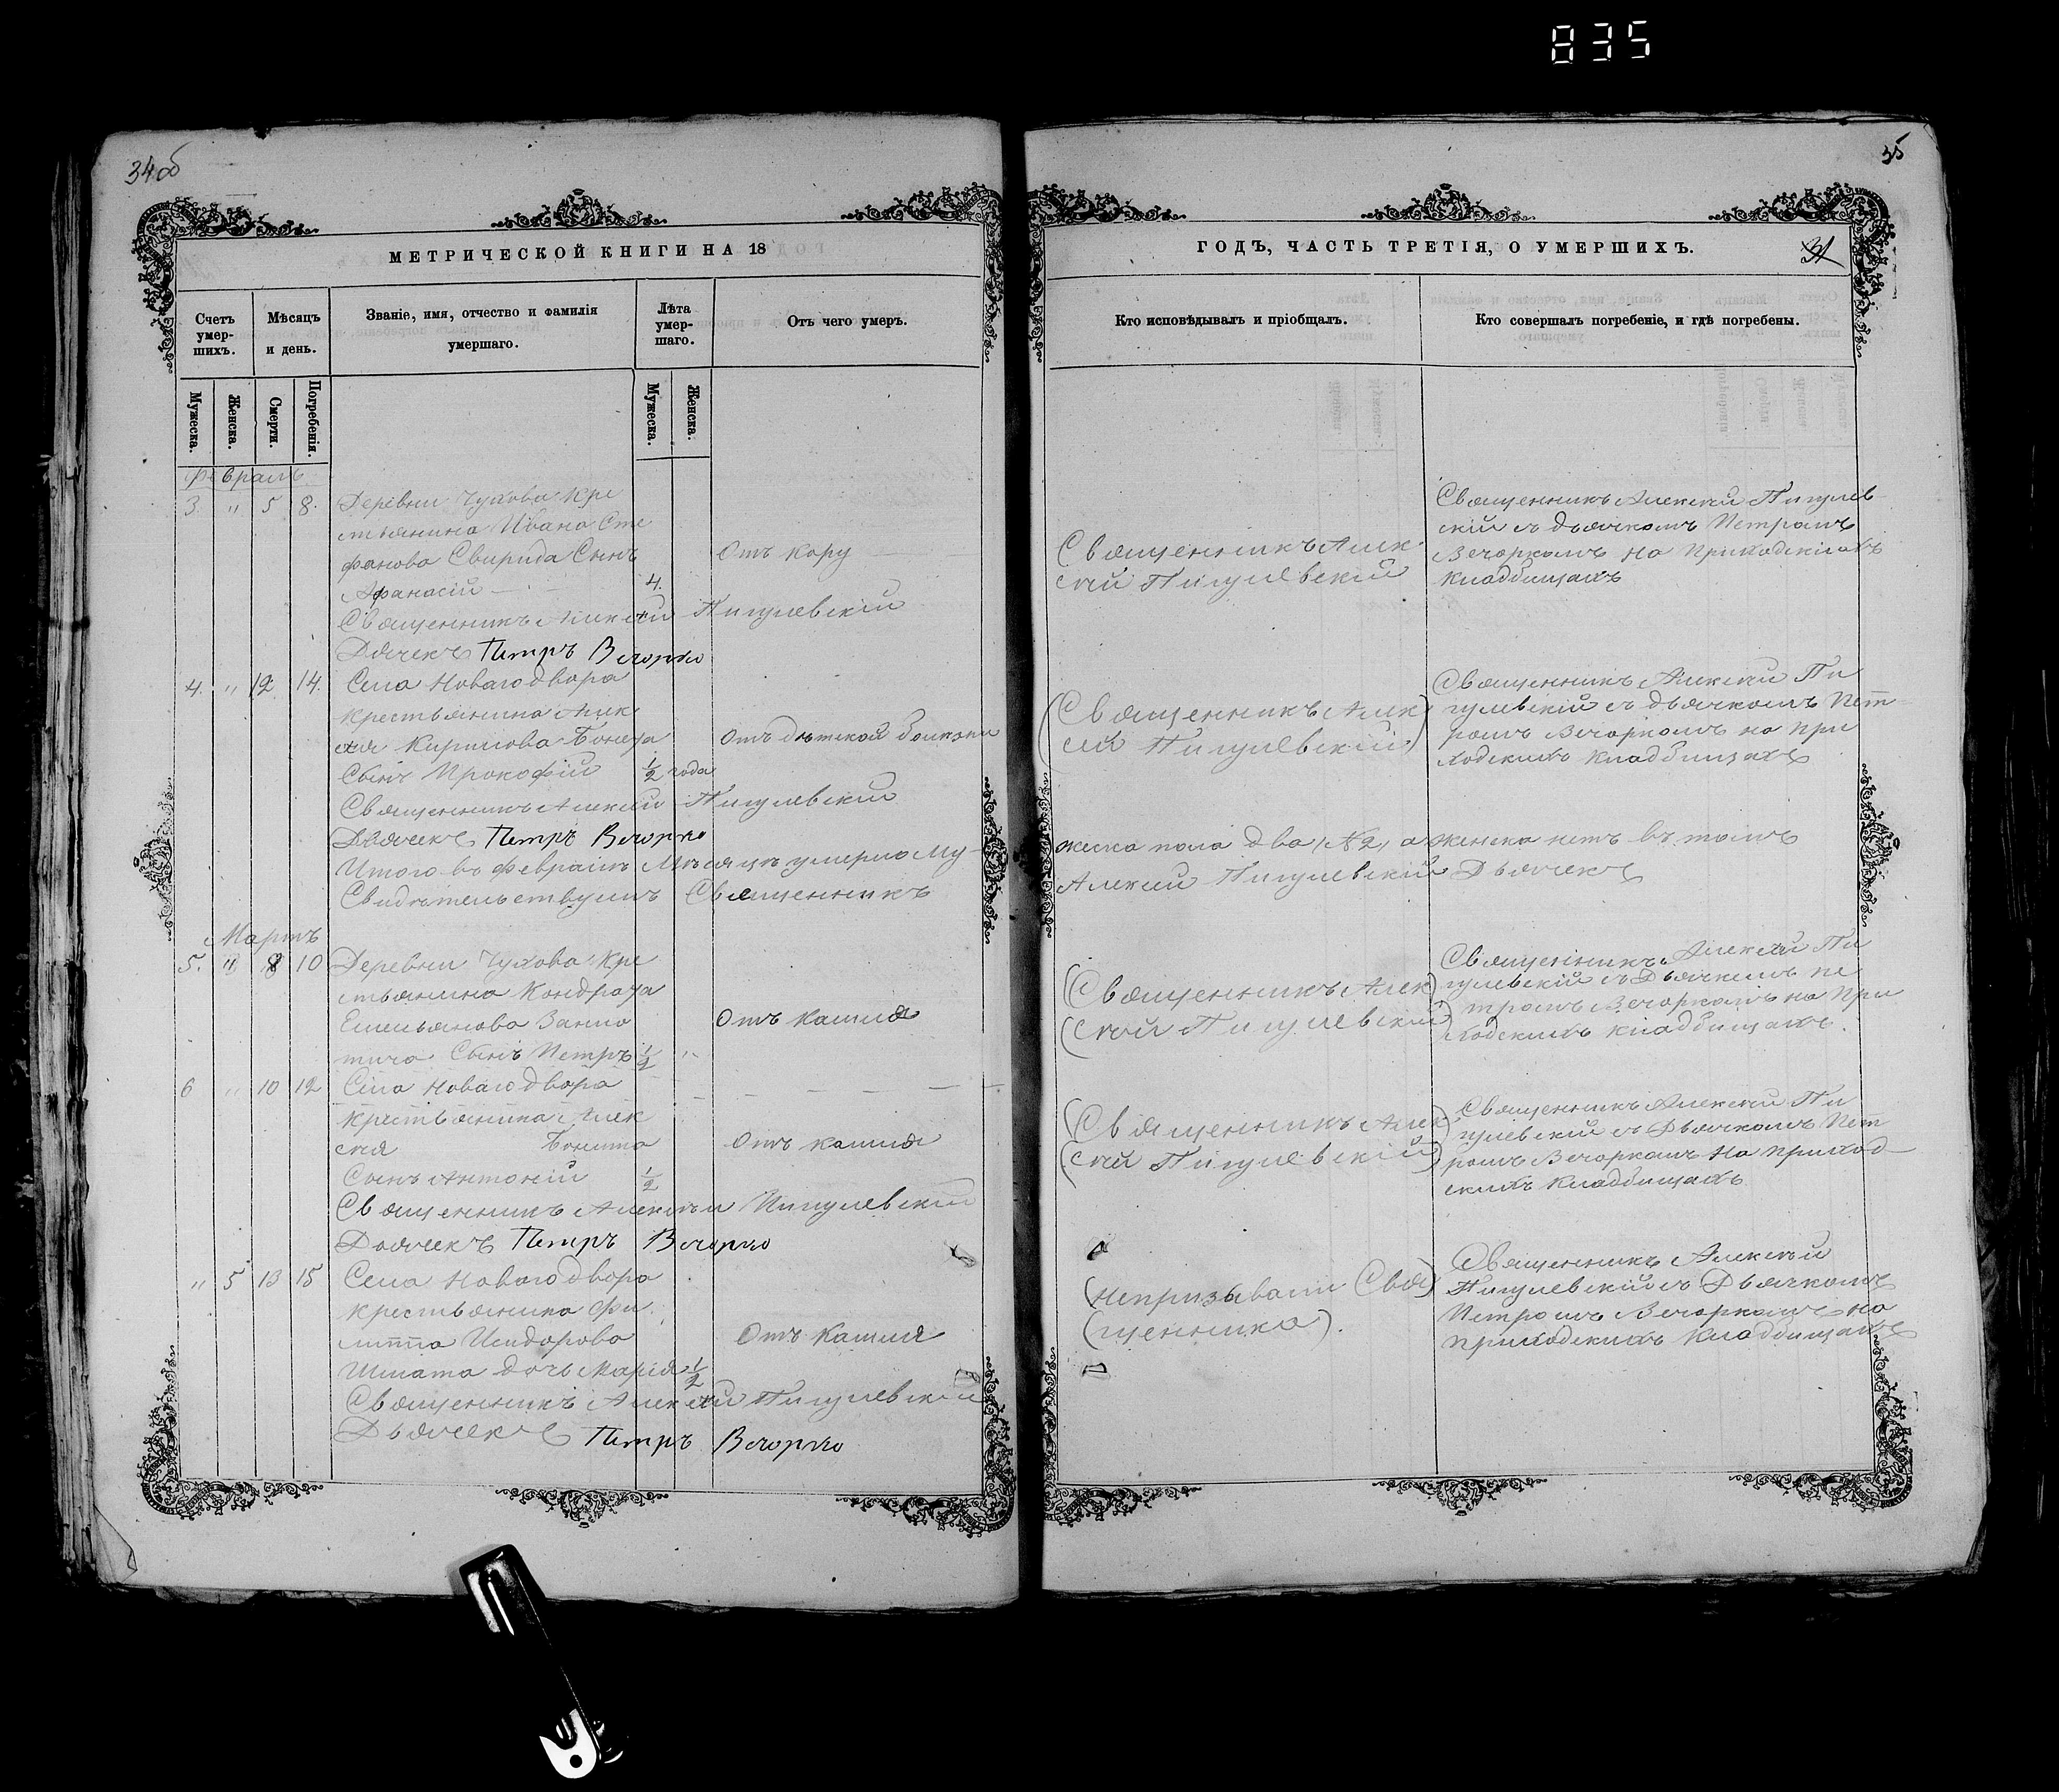 835
34об
МЕТРИЧЕСКОЙ КНИГИ НА 18
Счетъ умер-шихъ.
Мѣсяцъ и день.
Званіе, имя, отчество и фамилія умершаго.
Лѣта умер-шаго.
Отъ чего умеръ.
Мужеска.
Женска.
Смерти.
Погребенія.
Мужеска.
Женска.
Февраль
3 " 5 8. Деревни Чухова Кре
стьянина Ивана Сте
фанова Свирида Сынъ Отъ кору
Афанасій 4.
Священникъ Алексѣй Пигулевскій
Дьячекъ Петръ Вечорко
4. " 12 14. Села Новагодвора
крестьянина Алек
сѣя Кирилова Отъ дѣтской болѣзни
Сынъ Прокофій 1/2 года
Священникъ Алексѣй Пигулевскій
Дьячекъ Петръ Вечорко
Итого въ Февралѣ Мѣсяцѣ умерло Му-
Свидѣтельствуемъ Священникъ
Мартъ
5. " 8 10 Деревни Чухова Кре
стьянина Кондрата
Емельянова Отъ кашля
Сынъ Петръ 1/2 "
6 " 10 12 Села Новагодвора
крестьянина Алек
сѣя Отъ кашля
Сынъ Антоній 1/2
Священникъ Алексѣй Пигулевскій
Дьячекъ Петръ Вечорко
" 5 13 15 Села Новагодвора
крестьянина Фи
липпа Исидорова Отъ кашля
Шпата дочь Марія 1/2
Священникъ Алексѣй Пигулевскій
Дьячекъ Петръ Вечорко
35
ГОДЪ, ЧАСТЬ ТРЕТІЯ, О УМЕРШИХЪ.
31
Кто исповѣдывалъ и пріобщалъ.
Кто совершалъ погребеніе, и гдѣ погребены.
Священникъ Алек
сѣй Пигулевскій
Священникъ Алексѣй Пигулев
скій съ дьячкомъ Петромъ
Вечоркомъ на Приходскихъ
кладбищахъ
(Священникъ Алек
сѣй Пигулевскій)
Священникъ Алексѣй Пи
гулевскій съ дьячкомъ Пет
ромъ Вечоркомъ на при
ходскихъ кладбищахъ
жеска пола два (№2) а женска нетъ въ томъ
Алексѣй Пигулевскій Дьячекъ
(Священникъ Алек)
(сѣй Пигулевскій)
Священникъ Алексѣй Пи
гулевскій съ Дьячкомъ Пе
тромъ Вечоркомъ на При
ходскихъ кладбищахъ.
(Священникъ Алек)
(сѣй Пигулевскій)
Священникъ Алексѣй Пи
гулевскій съ Дьячкомъ Пет
ромъ Вечоркомъ на приход
скихъ кладбищахъ
(непризывали Свя)
(щенника).
Священникъ Алексѣй
Пигулевскій съ Дьячкомъ
Петромъ Вечоркомъ на
приходскихъ кладбищахъ